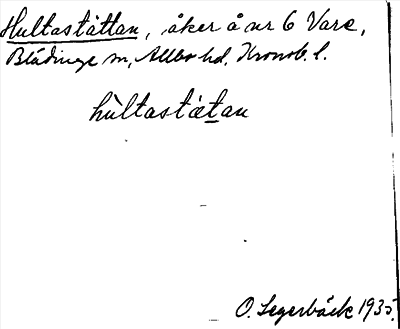 Hultastättan, åker å nr 6 Vare,
Blädinge sn, Allbo hd, Kronob. l.
hùltastätan
O. Segerbäck 1935.